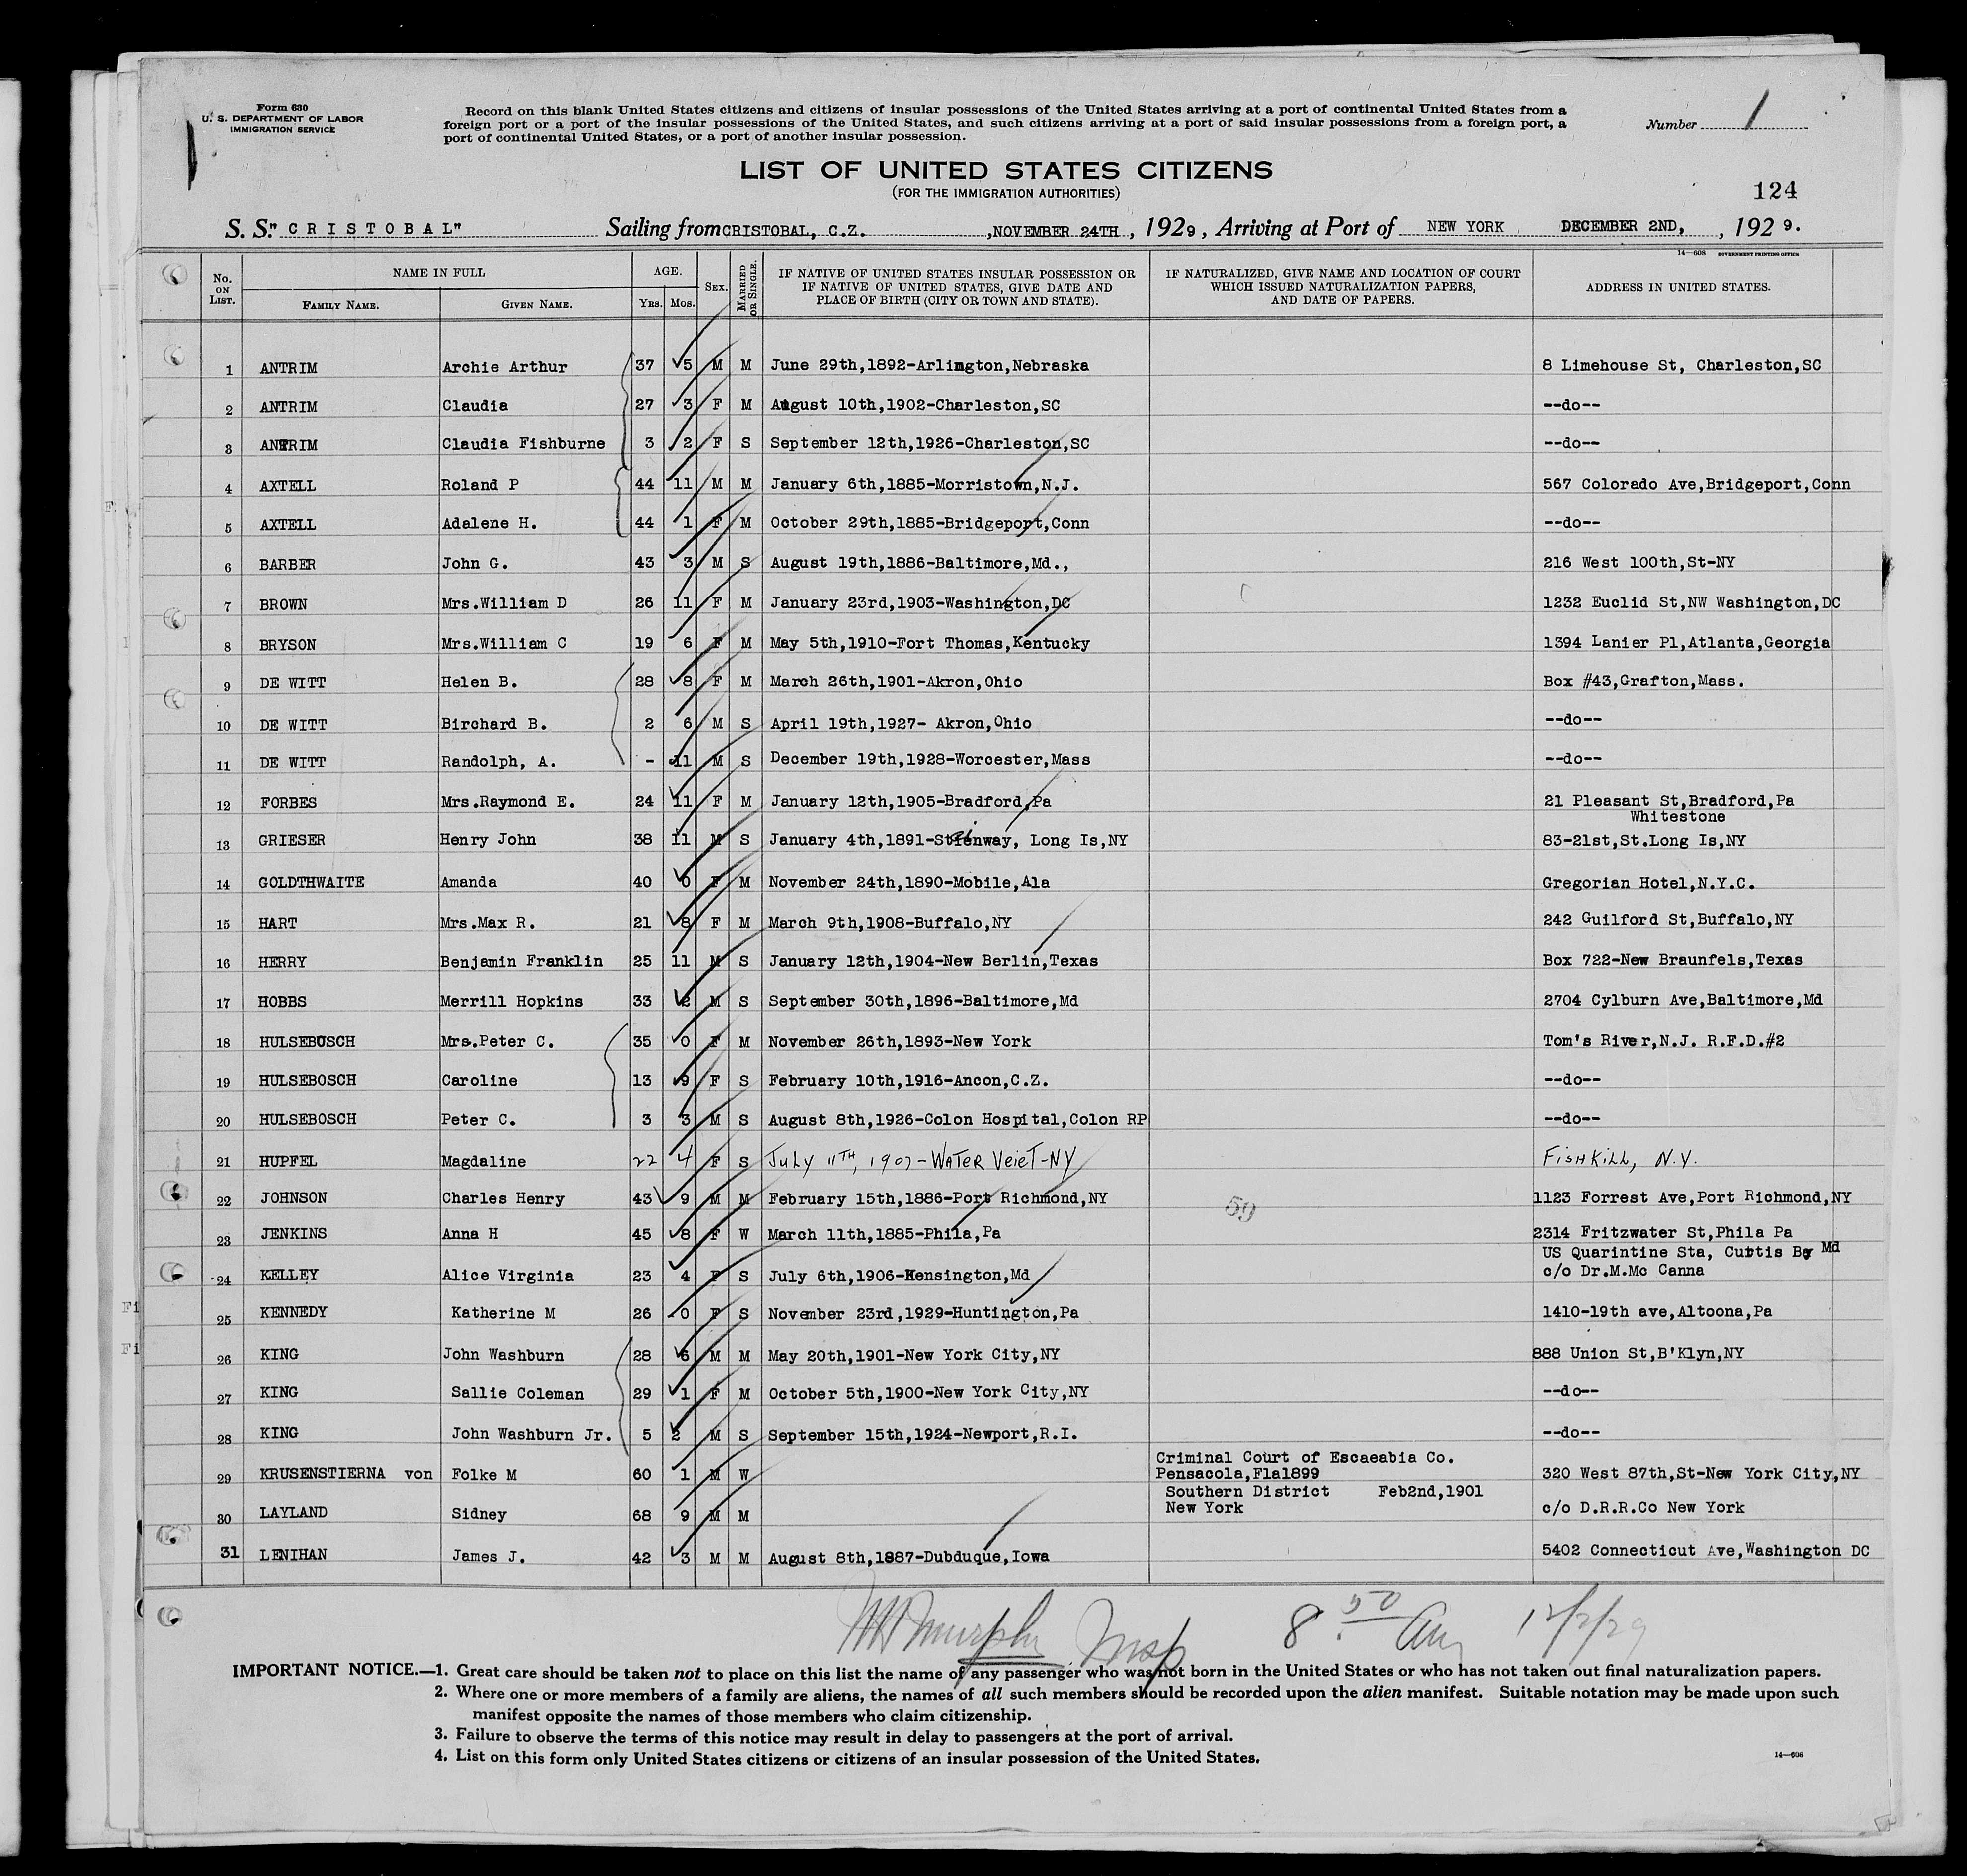 Form 630
U. S. DEPARTMENT OF LABOR
IMMIGRATION SERVICE
Record on this blank United States citizens and citizens of insular possessions of the United States arriving at a port of continental United States from a
foreign port or a port of the insular possessions of the United States, and such citizens arriving at a port of said insular possessions from a foreign port, a
port of continental United States, or a port of another insular possession.
Number 1
LIST OF UNITED STATES CITIZENS
(FOR THE IMMIGRATION AUTHORITIES)
124
S. S. "CRISTOBAL" Sailing from CRISTOBAL, C.Z. ,NOVEMBER 24TH, 1929, Arriving at Port of NEW YORK DECEMBER 2ND, , 1929.
14—608 GOVERNMENT PRINTING OFFICE
No. ON LIST. NAME IN FULL FAMILY NAME. GIVEN NAME. AGE. YRS. MOS. SEX. MARRIED OR SINGLE. IF NATIVE OF UNITED STATES INSULAR POSSESSION OR IF NATIVE OF UNITED STATES, GIVE DATE AND PLACE OF BIRTH (CITY OR TOWN AND STATE). IF NATURALIZED, GIVE NAME AND LOCATION OF COURT WHICH ISSUED NATURALIZATION PAPERS, AND DATE OF PAPERS. ADDRESS IN UNITED STATES.
1 ANTRIM Archie Arthur 37 5 M M June 29th,1892-Arlington,Nebraska 8 Limehouse St, Charleston,SC
2 ANTRIM Claudia 27 3 F M August 10th,1902-Charleston,SC --do--
3 ANTRIM Claudia Fishburne 3 2 F S September 12th,1926-Charleston,SC --do--
4 AXTELL Roland P 44 11 M M January 6th,1885-Morristown,N.J. 567 Colorado Ave,Bridgeport,Conn
5 AXTELL Adalene H. 44 1 F M October 29th,1885-Bridgeport,Conn --do--
6 BARBER John G. 43 3 M S August 19th,1886-Baltimore,Md., 216 West 100th,St-NY
7 BROWN Mrs.William D 26 11 F M January 23rd,1903-Washington,DC 1232 Euclid St,NW Washington,DC
8 BRYSON Mrs.William C 19 6 F M May 5th,1910-Fort Thomas,Kentucky 1394 Lanier Pl,Atlanta,Georgia
9 DE WITT Helen B. 28 8 F M March 26th,1901-Akron,Ohio Box #43,Grafton,Mass.
10 DE WITT Birchard B. 2 6 M S April 19th,1927- Akron,Ohio --do--
11 DE WITT Randolph, A. - 11 M S December 19th,1928-Worcester,Mass --do--
12 FORBES Mrs.Raymond E. 24 11 F M January 12th,1905-Bradford,Pa 21 Pleasant St,Bradford,Pa
Whitestone
13 GRIESER Henry John 38 11 M S January 4th,1891-Steinway, Long Is,NY 83-21st,St.Long Is,NY
14 GOLDTHWAITE Amanda 40 0 F M November 24th,1890-Mobile,Ala Gregorian Hotel,N.Y.C.
15 HART Mrs.Max R. 21 8 F M March 9th,1908-Buffalo,NY 242 Guilford St,Buffalo,NY
16 HERRY Benjamin Franklin 25 11 M S January 12th,1904-New Berlin,Texas Box 722-New Braunfels,Texas
17 HOBBS Merrill Hopkins 33 2 M S September 30th,1896-Baltimore,Md 2704 Cylburn Ave,Baltimore,Md
18 HULSEBOSCH Mrs.Peter C. 35 0 F M November 26th,1893-New York Tom's River,N.J. R.F.D.#2
19 HULSEBOSCH Caroline 13 9 F S February 10th,1916-Ancon,C.Z. --do--
20 HULSEBOSCH Peter C. 3 3 M S August 8th,1926-Colon Hospital,Colon RP --do--
21 HUPFEL Magdaline 22 4 F S July 11TH, 1907-Water Veiet-NY FishKill, N.Y.
22 JOHNSON Charles Henry 43 9 M M February 15th,1886-Port Richmond,NY 1123 Forrest Ave,Port Richmond,NY
23 JENKINS Anna H 45 8 F W March 11th,1885-Phila,Pa 2314 Fritzwater St,Phila Pa
US Quarintine Sta, Curtis By Md
24 KELLEY Alice Virginia 23 4 F S July 6th,1906-Kensington,Md c/o Dr.M.Mc Canna
25 KENNEDY Katherine M 26 0 F S November 23rd,1929-Huntington,Pa 1410-19th ave,Altoona,Pa
26 KING John Washburn 28 6 M M May 20th,1901-New York City,NY 888 Union St,B'Klyn,NY
27 KING Sallie Coleman 29 1 F M October 5th,1900-New York City,NY --do--
28 KING John Washburn Jr. 5 2 M S September 15th,1924-Newport,R.I. --do--
Criminal Court of Escaeabia Co.
29 KRUSENSTIERNA von Folke M 60 1 M W Pensacola,Fla1899 320 West 87th,St-New York City,NY
Southern District Feb2nd,1901
30 LAYLAND Sidney 68 9 M M New York c/o D.R.R.Co New York
31 LENIHAN James J. 42 3 M M August 8th,1887-Dubduque,Iowa 5402 Connecticut Ave,Washington DC
59
Murphy Insp 8 50 Am 12/2/29
IMPORTANT NOTICE.—1. Great care should be taken not to place on this list the name of any passenger who was not born in the United States or who has not taken out final naturalization papers.
2. Where one or more members of a family are aliens, the names of all such members should be recorded upon the alien manifest. Suitable notation may be made upon such
manifest opposite the names of those members who claim citizenship.
3. Failure to observe the terms of this notice may result in delay to passengers at the port of arrival.
4. List on this form only United States citizens or citizens of an insular possession of the United States.
14—608